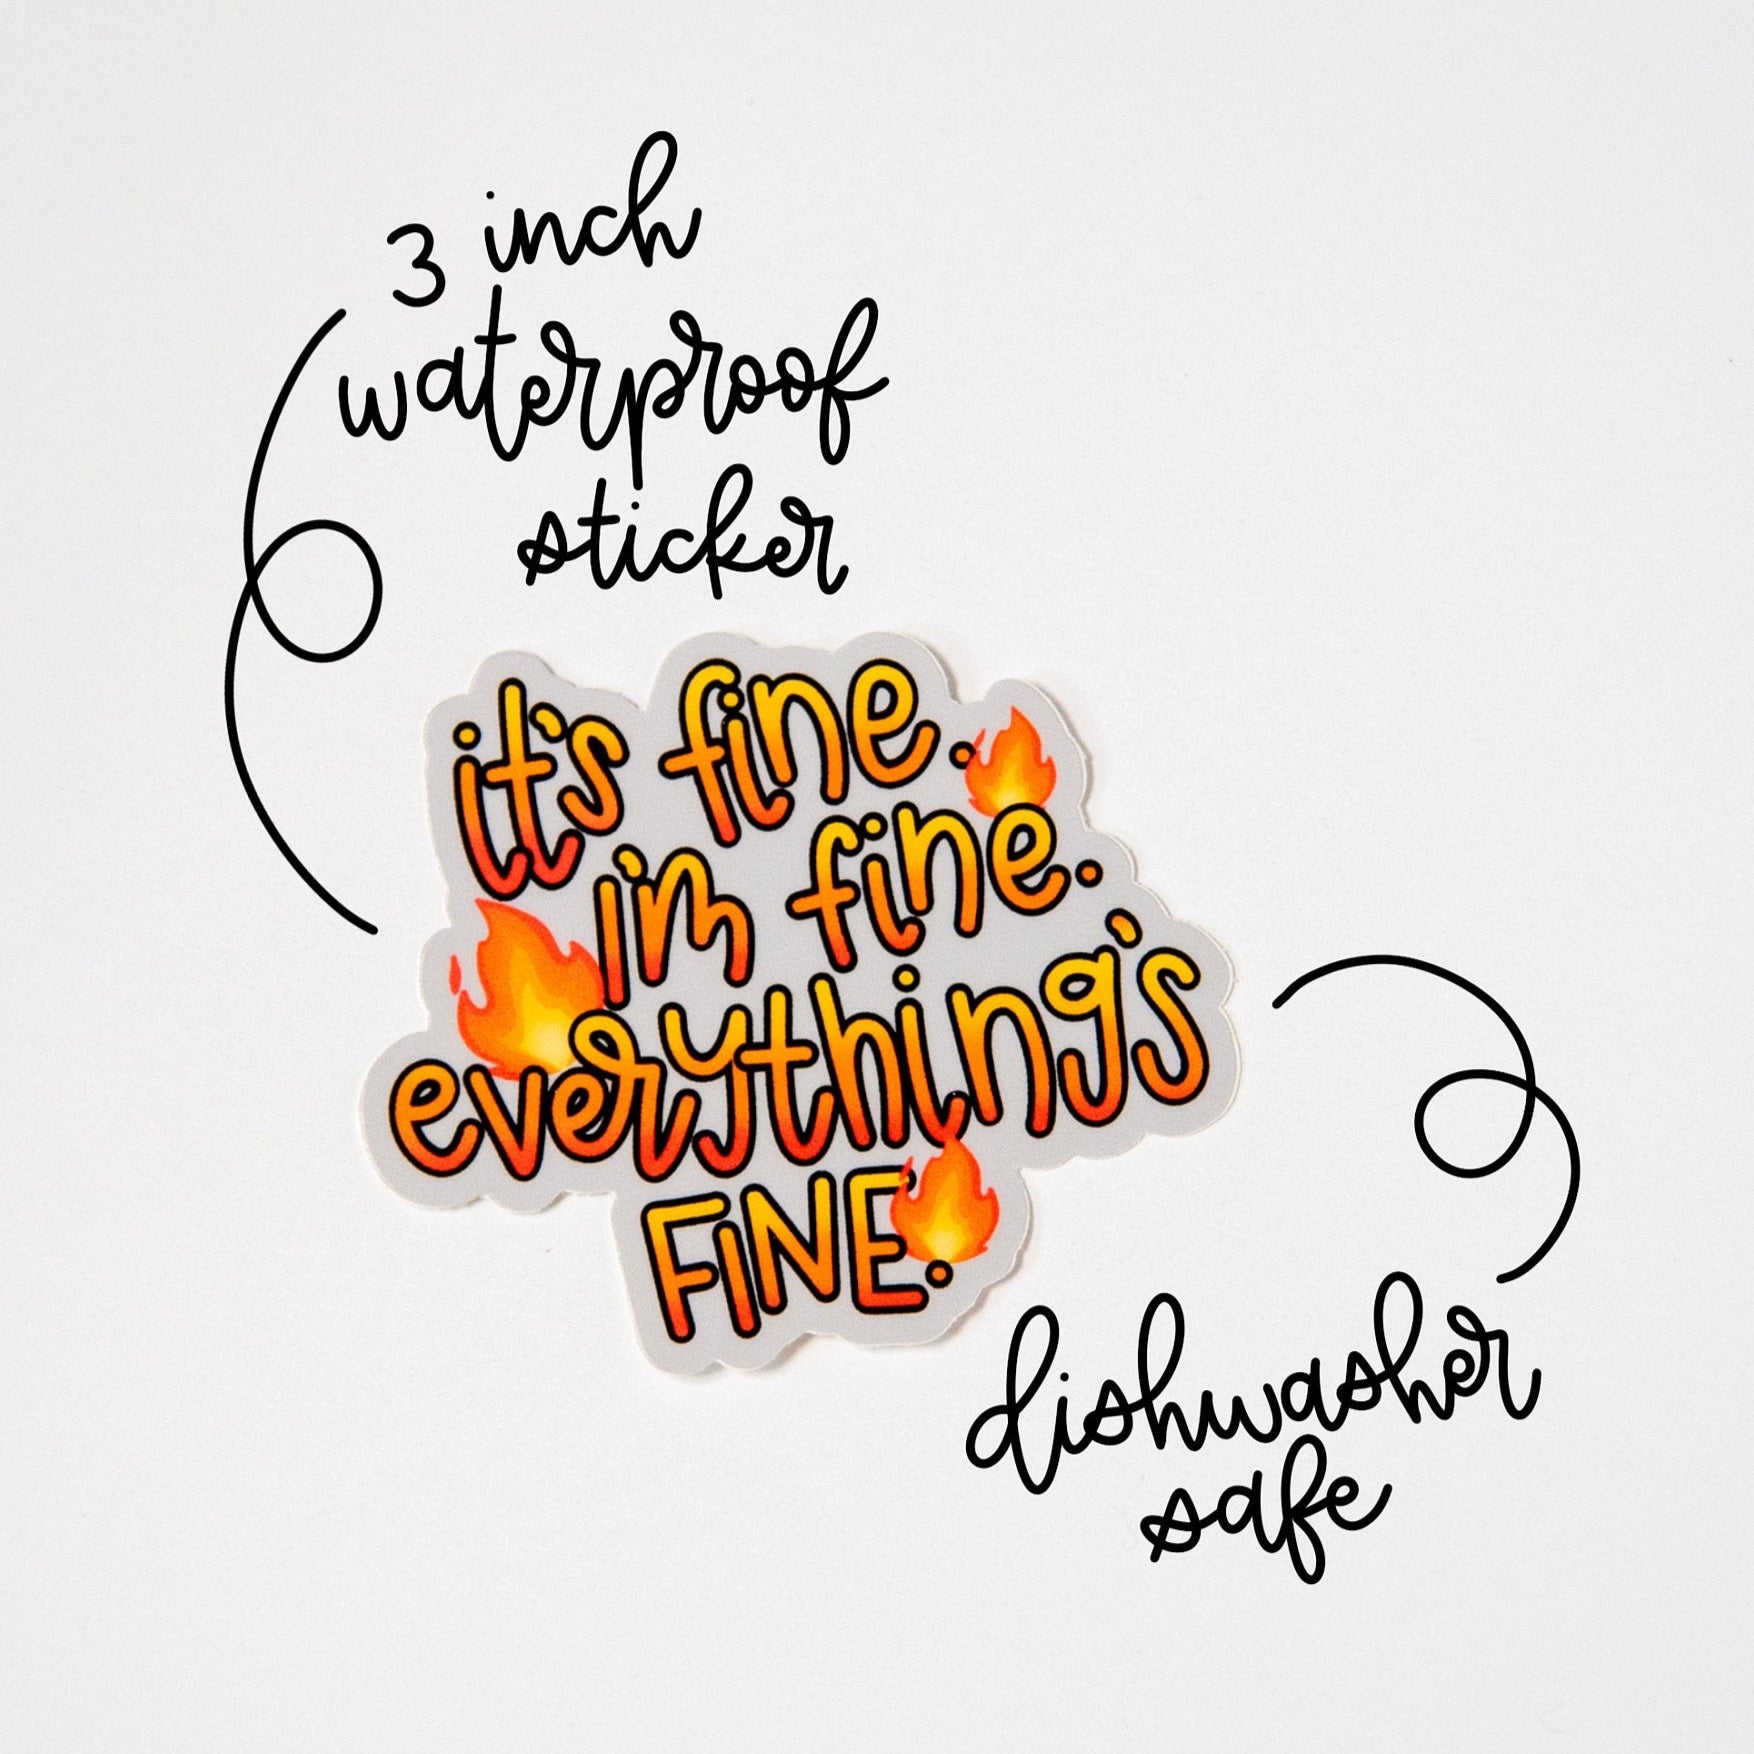 3 inch
waterproof
sticker
it's fine.
I'm fine.
everything's
FiNE.
dishwasher
safe